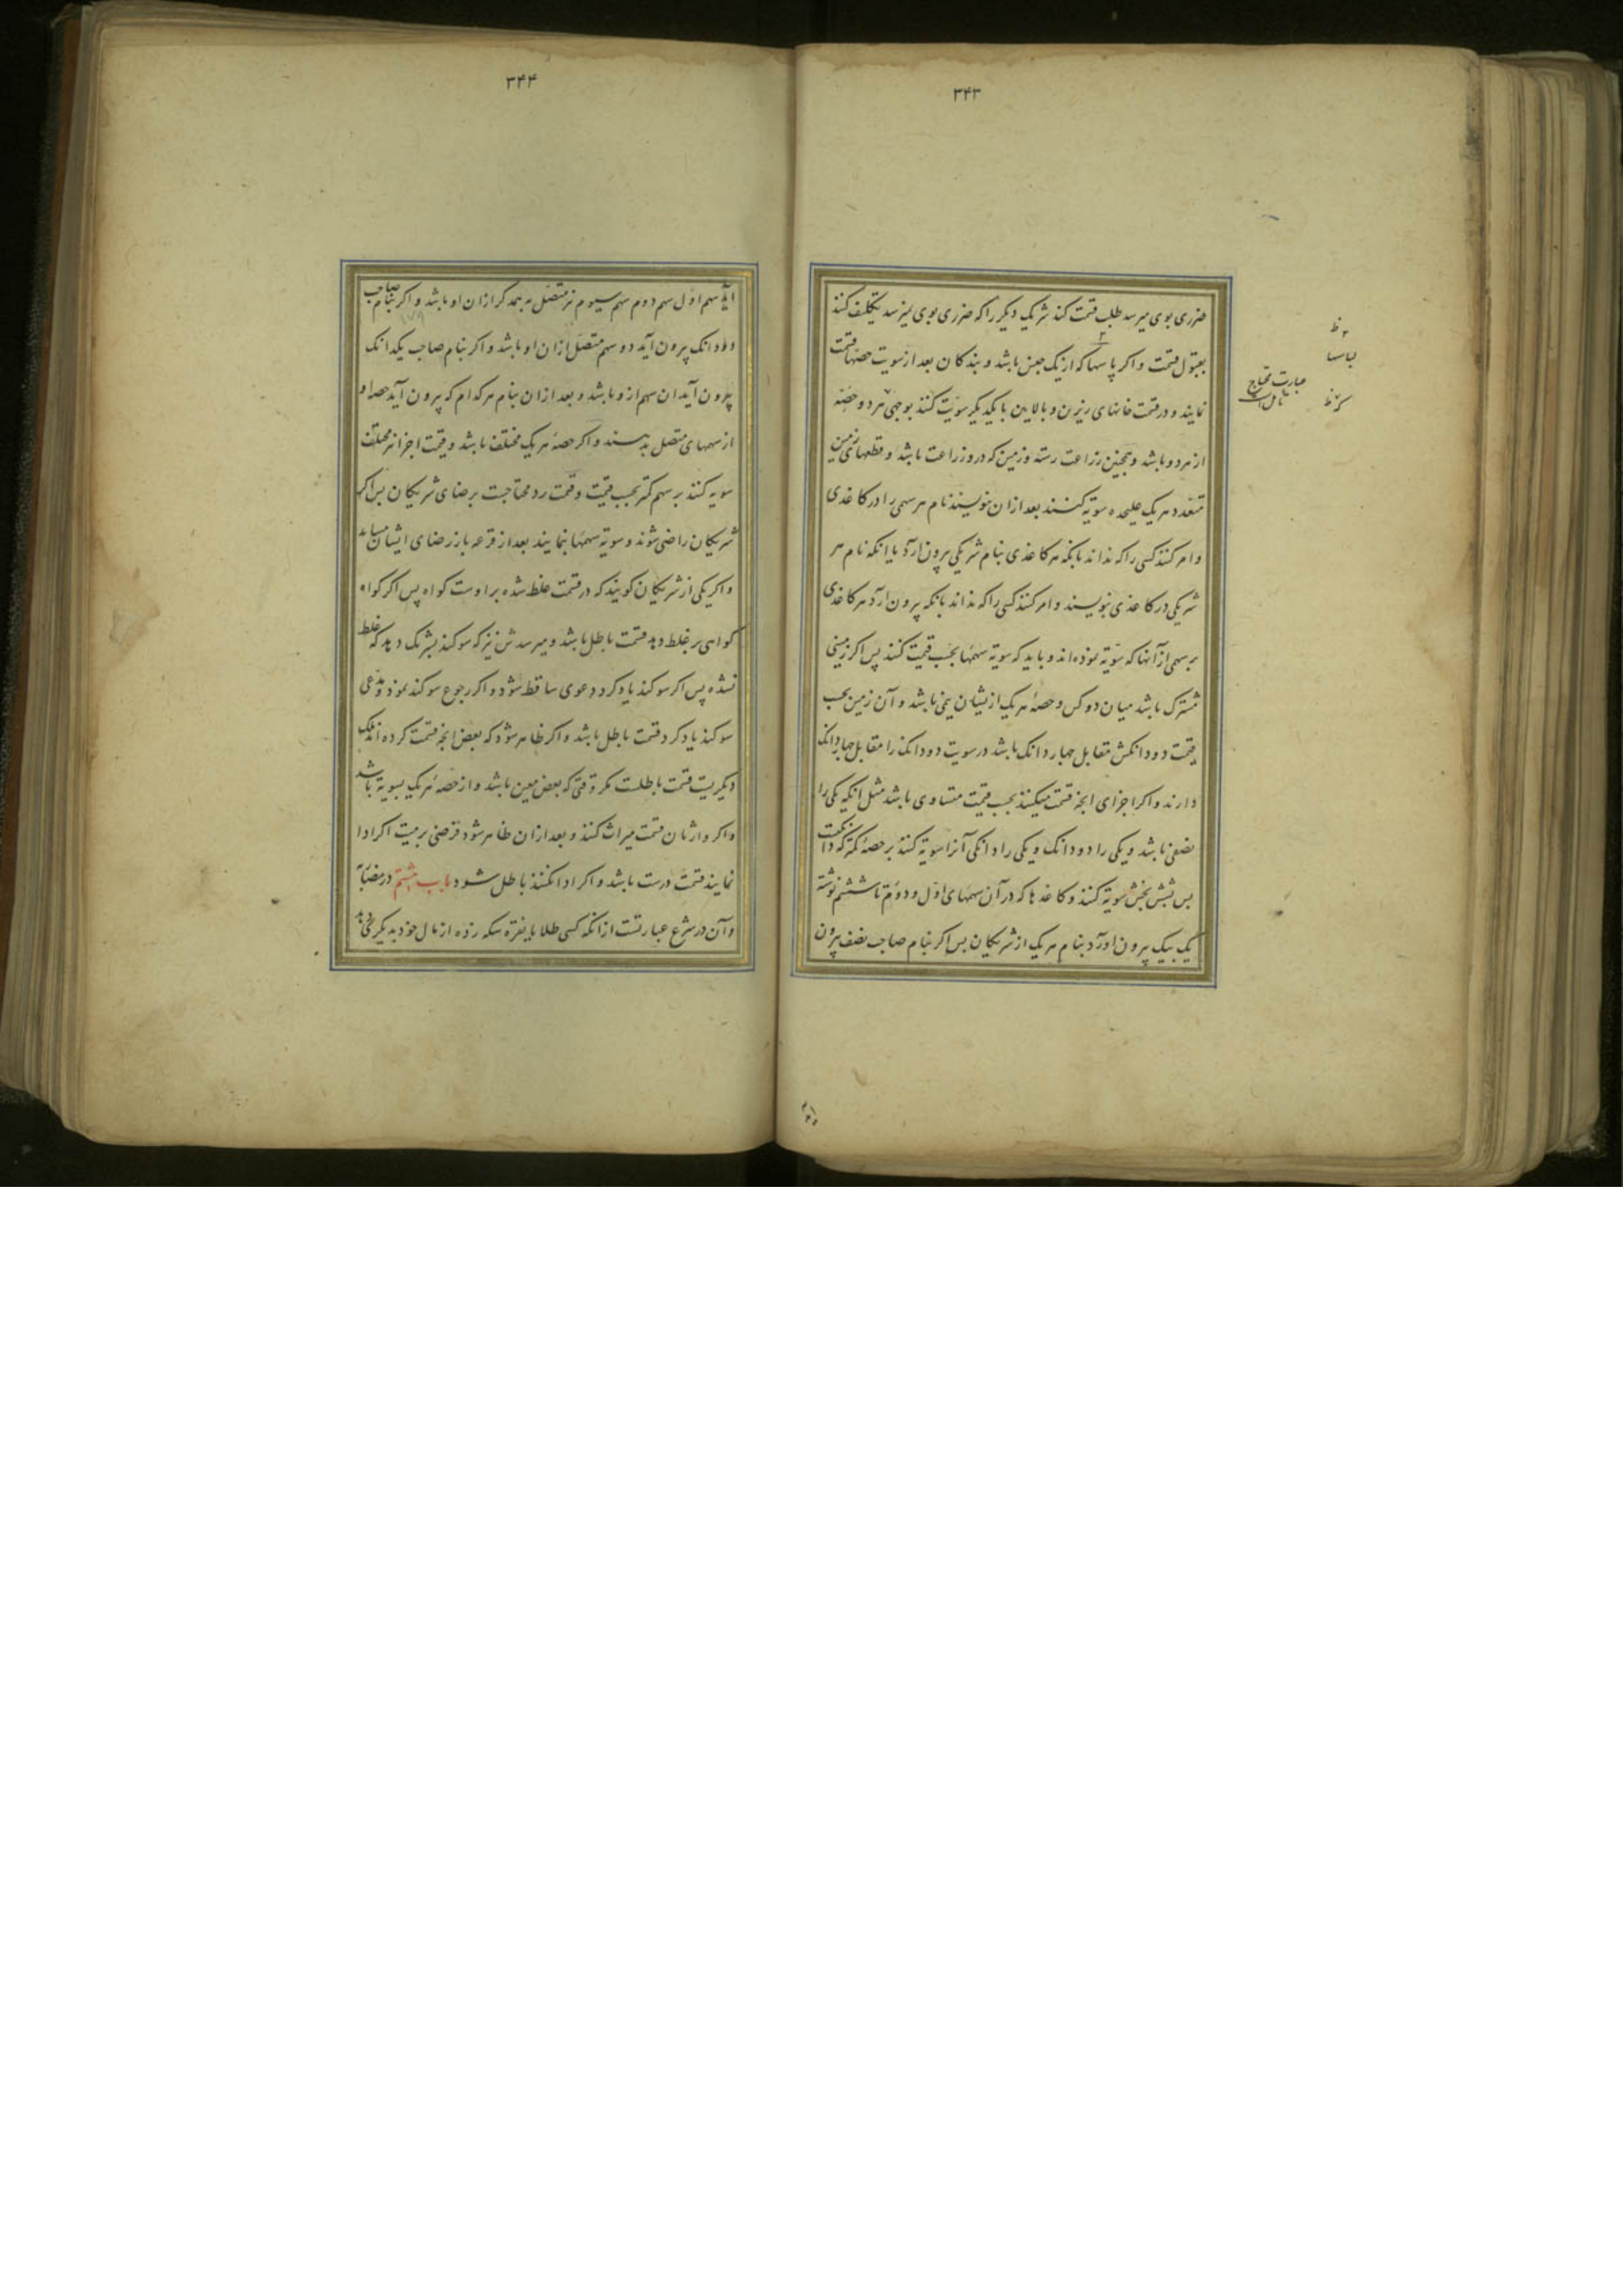 ۳۴۳
ضرری بوی میرسد طلب قسمت کند شریک دیکر را که ضرری بوی نمیرسد تکلیف کنند
بقبول قسمت و اکر پاسها که از یک جنس باشد و بندکان بعد از سویت حصّها قسمت
نمایند و در قسمت خانهای زیرین و بالایین با یکدیکر سویّت کنند بوجهی که هر دو حصّه
از هر دو باشد و همچنین زراعت رسته و زمین که در و زراعت باشد و قطعهای زمین
متعدد هر یک علیحده سویّه کنند بعد از ان بنویسند نام هر سهمی را در کاغذی
و امر کنند کسی را که نداند بانکه هر کاغذی بنام شریکی بیرون ارد یا انکه نام هر
شریکی در کاغذی بنویسند و امر کنند کسی را که نداند بانکه بیرون ارد هر کاغذی
بر سهمی از آنها که سویّه نموده‌اند و باید که سویّه سهمها بحسب قیمت کنند پس اکر زمینی
مشترک باشد میان دو کس و حصهٔ هر یک از یشان نیمی باشد و آن زمین بحسب
قیمت دو دانکش مقابل چهار دانک باشد در سویت دو دانک را مقابل چهار دانک
دارند و اکر اجزای انچه قسمت میکنند بحسب قیمت متساوی باشد مثل انکه یکی را
نصفی باشد و یکی را دو دانک و یکی را دانکی آنرا سویّه کنند بر حصهٔ کمتر که دانکست
پس بشش بخش سویّه کنند و کاغذها که در آن سهمهای اوّل و دوّم تا ششم نوشته
یک بیک بیرون اورد بنام هر یک از شریکان پس اکر بنام صاحب نصف بیرون
ظ
لباسها
عبارت محتاج
ظ
۳۴۴
اید سهم اوّل سهم دوم سهم سیوم نیز متصّل بهمدکر ازان او باشد و اکر بنام صاحب
دودانک بیرون آید دو سهم متصّل ازان او باشد و اکر بنام صاحب یکدانک
بیرون آید ان سهم از و باشد و بعد از ان بنام هر کدام که بیرون آید حصه او
از سهمهای متصل بدهند و اکر حصهٔ هر یک مختلف باشد و قیمت اجزا نیز مختلف
سویه کنند بر سهم کمتر بحسب قیمت و قسمت رد محتاجست برضای شریکان پس اکر
شریکان راضی شوند و سویّه سهمها بنمایند بعد از قرعه باز رضای ایشان میباید
و اکر یکی از شریکان کویند که در قسمت غلط شده بر اوست کواه پس اکر کواه
کواهی بر غلط دهد قسمت باطل باشد و میرسدش نیز که سوکند بشریک دهد که غلط
نشده پس اکر سوکند یاد کرد دعوی ساقط شود و اکر رجوع سوکند نمود و مدّعی
سوکند یاد کرد قسمت باطل باشد و اکر ظاهر شود که بعض انچه قسمت کرده‌اند ملک
دیکریست قسمت باطلست مکر وقتی که بعض معین باشد و از حصّهٔ هر یک بسویّه باشد
و اکر وارثان قسمت میراث کنند و بعد از ان ظاهر شود قرضی بر میت اکر ادا
نمایند قسمت درست باشد و اکر ادا نکنند باطل شود باب هشتم در مضاربة
و آن در شرع عبارتست از انکه کسی طلا یا نقره سکه زده از مال خود بدیکری دهد